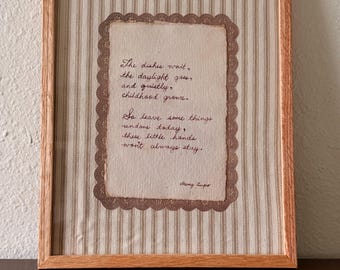 The dishes wait,
the daylight goes,
and quietly,
childhood grows.
So leave some things
undone today,
these little hands
won't always stay.